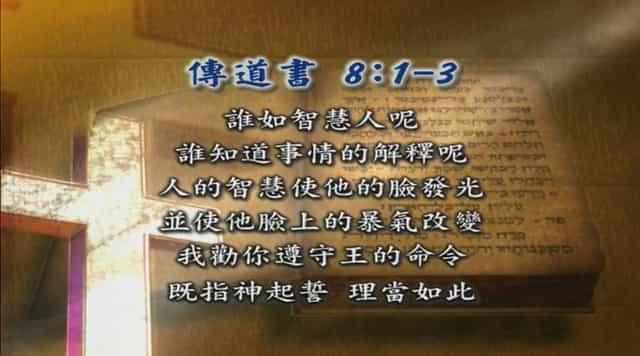 傳道書 8:1-3
誰如智慧人呢
誰知道事情的解釋呢
人的智慧使他的臉發光
並使他臉上的暴氣改變
我勸你遵守王的命令
既指神起誓 理當如此